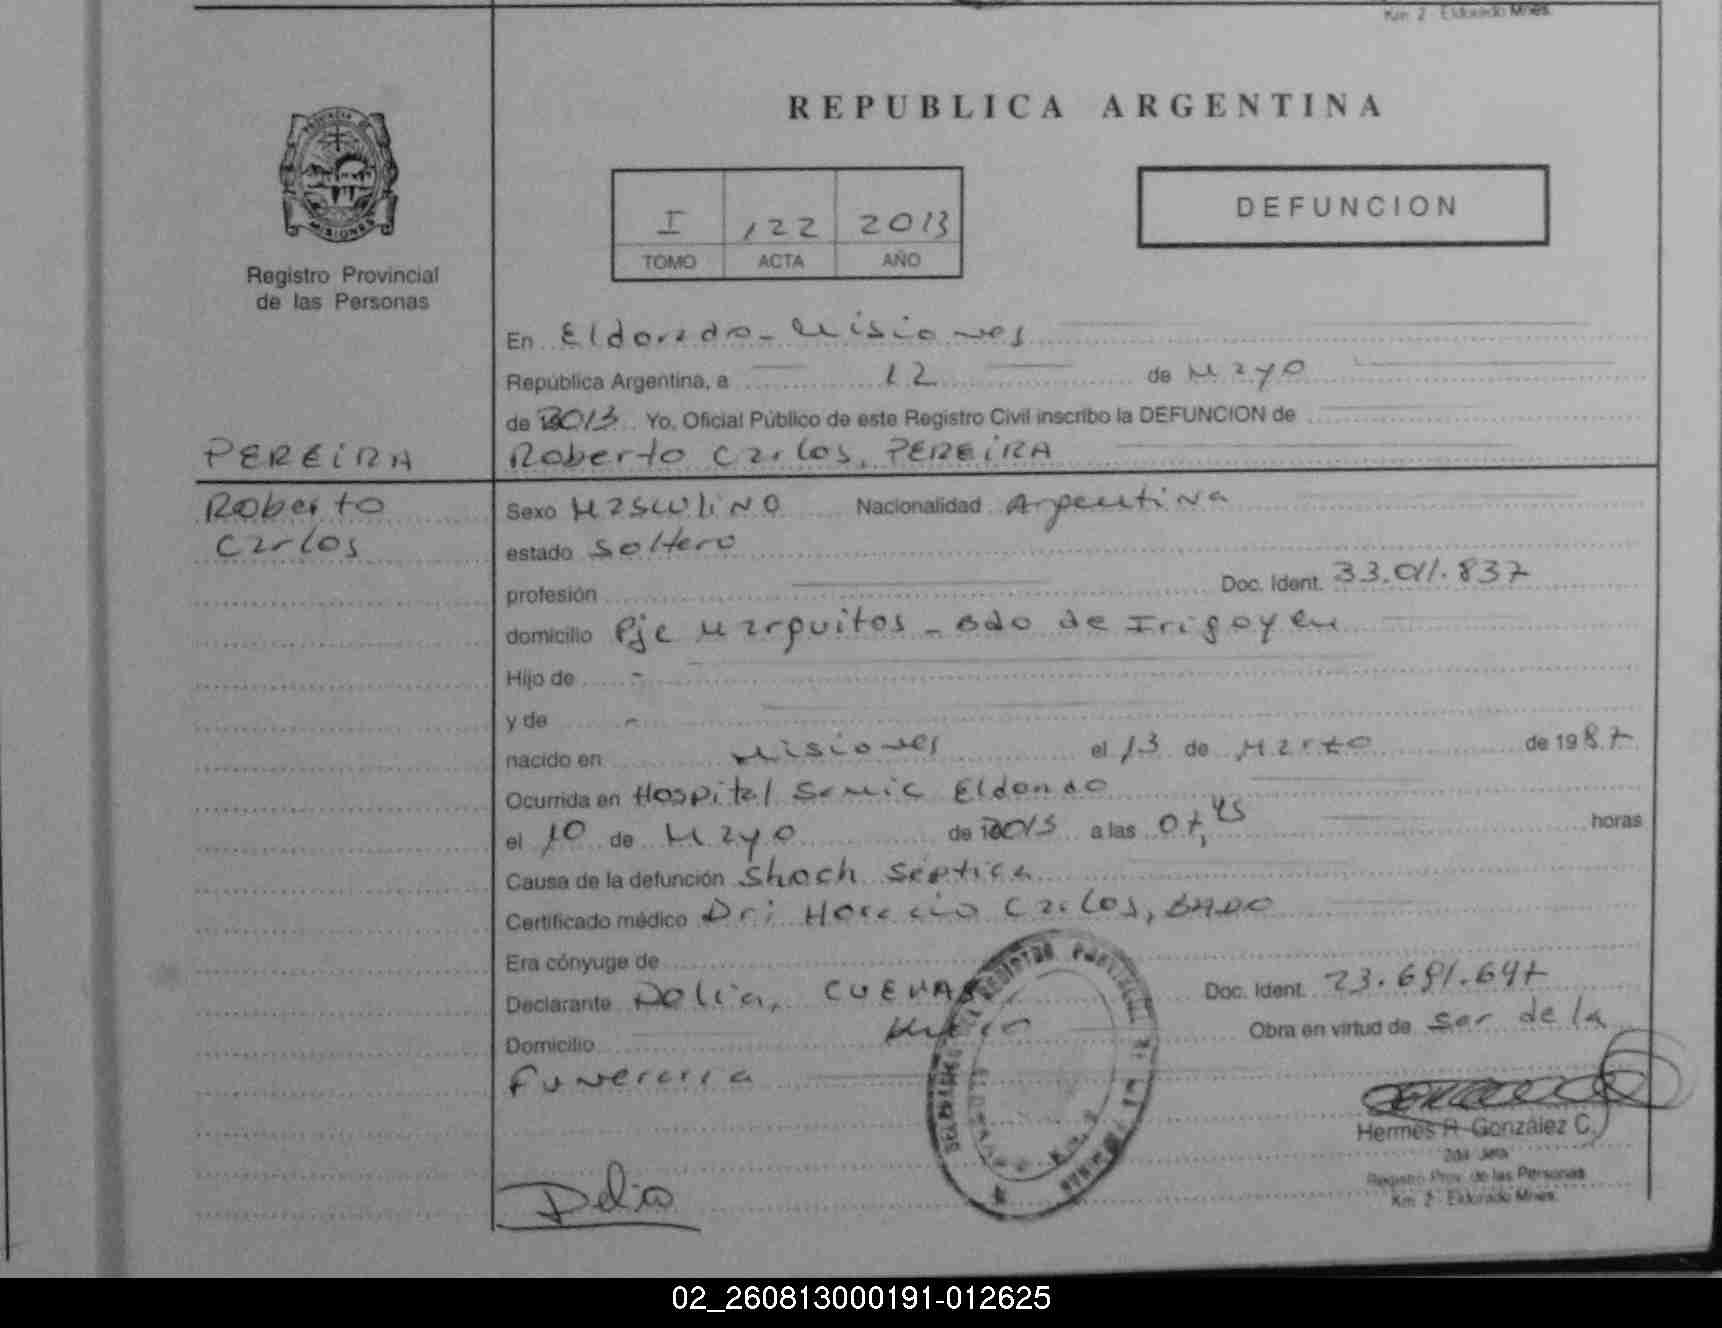 Km. 2 - Eldorado Mnes.
REPUBLICA ARGENTINA
PROVINCIA DE
MISIONES
Registro Provincial
de las Personas
I 122 2013
TOMO ACTA AÑO
DEFUNCION
En Eldorado - Misiones
República Argentina, a 12 de Mayo
de 2013 Yo, Oficial Público de este Registro Civil inscribo la DEFUNCION de
PEREIRA Roberto Carlos, PEREIRA
Roberto
Carlos
Sexo Masculino Nacionalidad Argentina
estado Soltero
profesión Doc. Ident. 33.011.837
domicilio Pje Marquitos - Bdo de Irigoyen
Hijo de -
y de -
nacido en Misiones el 13 de Marzo de 1987
Ocurrida en Hospital Samic Eldorado
el 10 de Mayo de 2013 a las 07,45 horas
Causa de la defunción Shoch Septica
Certificado médico Dr: Horacio Carlos, BADO
Era cónyuge de
Declarante Delia, CUEVAS Doc. Ident. 23.691.647
Domicilio Obra en virtud de ser de la
funeraria
Delia
Hermes R. González C.
2da Jefa
Registro Prov. de las Personas
Km. 2 - Eldorado Mnes.
02_260813000191-012625